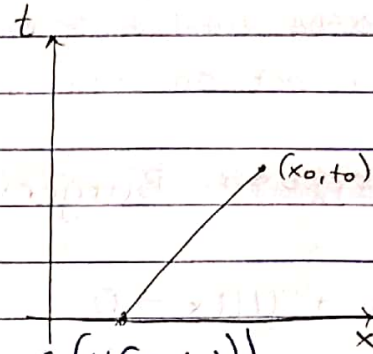 t
(x₀,t₀)
x